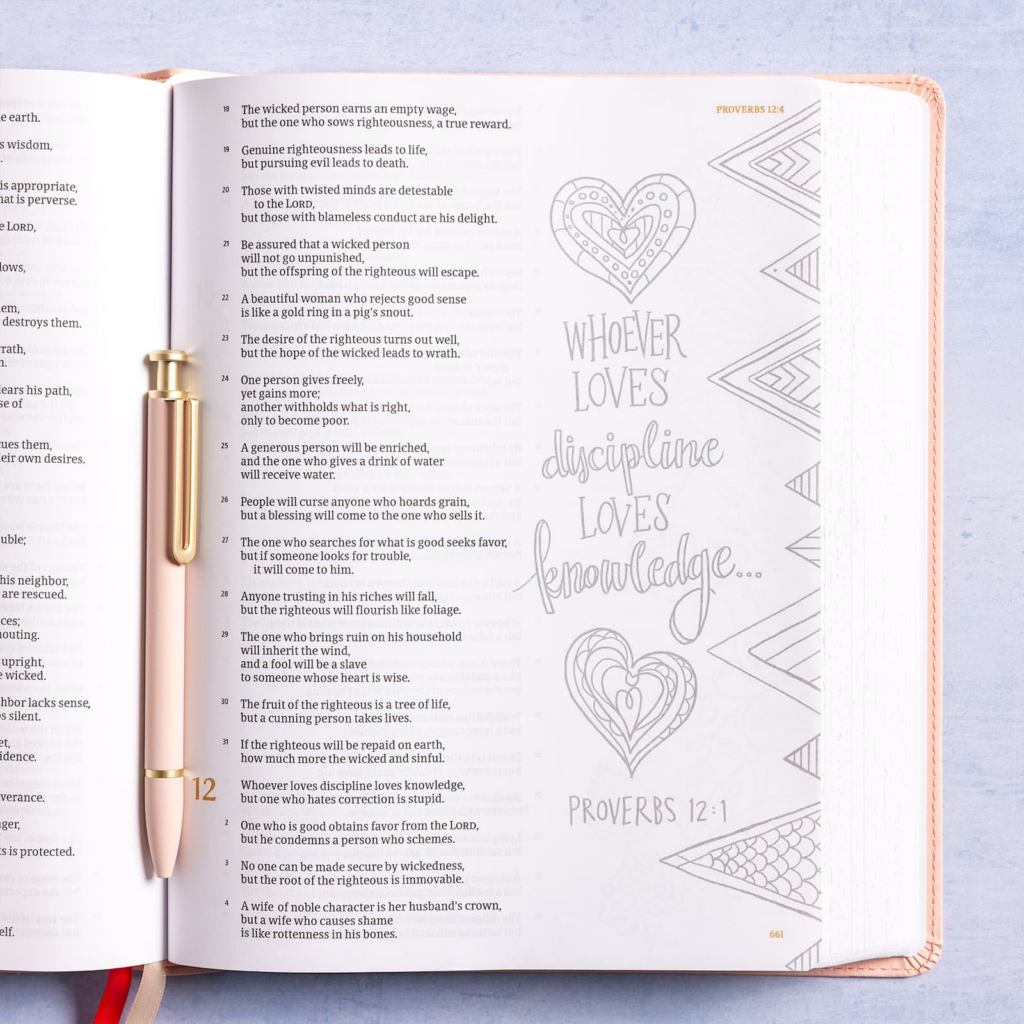 e earth.
s wisdom,
.
is appropriate,
hat is perverse.
e LORD,
lows,
em,
destroys them.
rath,
n.
lears his path,
se of
cues them,
eir own desires.
uble;
his neighbor,
are rescued.
ces;
houting.
upright,
e wicked.
ghbor lacks sense,
s silent.
et,
idence.
verance.
ger,
ts is protected.
elf.
18 The wicked person earns an empty wage,
but the one who sows righteousness, a true reward.
19 Genuine righteousness leads to life,
but pursuing evil leads to death.
20 Those with twisted minds are detestable
to the LORD,
but those with blameless conduct are his delight.
21 Be assured that a wicked person
will not go unpunished,
but the offspring of the righteous will escape.
22 A beautiful woman who rejects good sense
is like a gold ring in a pig's snout.
23 The desire of the righteous turns out well,
but the hope of the wicked leads to wrath.
24 One person gives freely,
yet gains more;
another withholds what is right,
only to become poor.
25 A generous person will be enriched,
and the one who gives a drink of water
will receive water.
26 People will curse anyone who hoards grain,
but a blessing will come to the one who sells it.
27 The one who searches for what is good seeks favor,
but if someone looks for trouble,
it will come to him.
28 Anyone trusting in his riches will fall,
but the righteous will flourish like foliage.
29 The one who brings ruin on his household
will inherit the wind,
and a fool will be a slave
to someone whose heart is wise.
30 The fruit of the righteous is a tree of life,
but a cunning person takes lives.
31 If the righteous will be repaid on earth,
how much more the wicked and sinful.
12 Whoever loves discipline loves knowledge,
but one who hates correction is stupid.
2 One who is good obtains favor from the LORD,
but he condemns a person who schemes.
3 No one can be made secure by wickedness,
but the root of the righteous is immovable.
4 A wife of noble character is her husband's crown,
but a wife who causes shame
is like rottenness in his bones.
PROVERBS 12:4
WHOEVER
LOVES
discipline
LOVES
knowledge...
PROVERBS 12:1
661